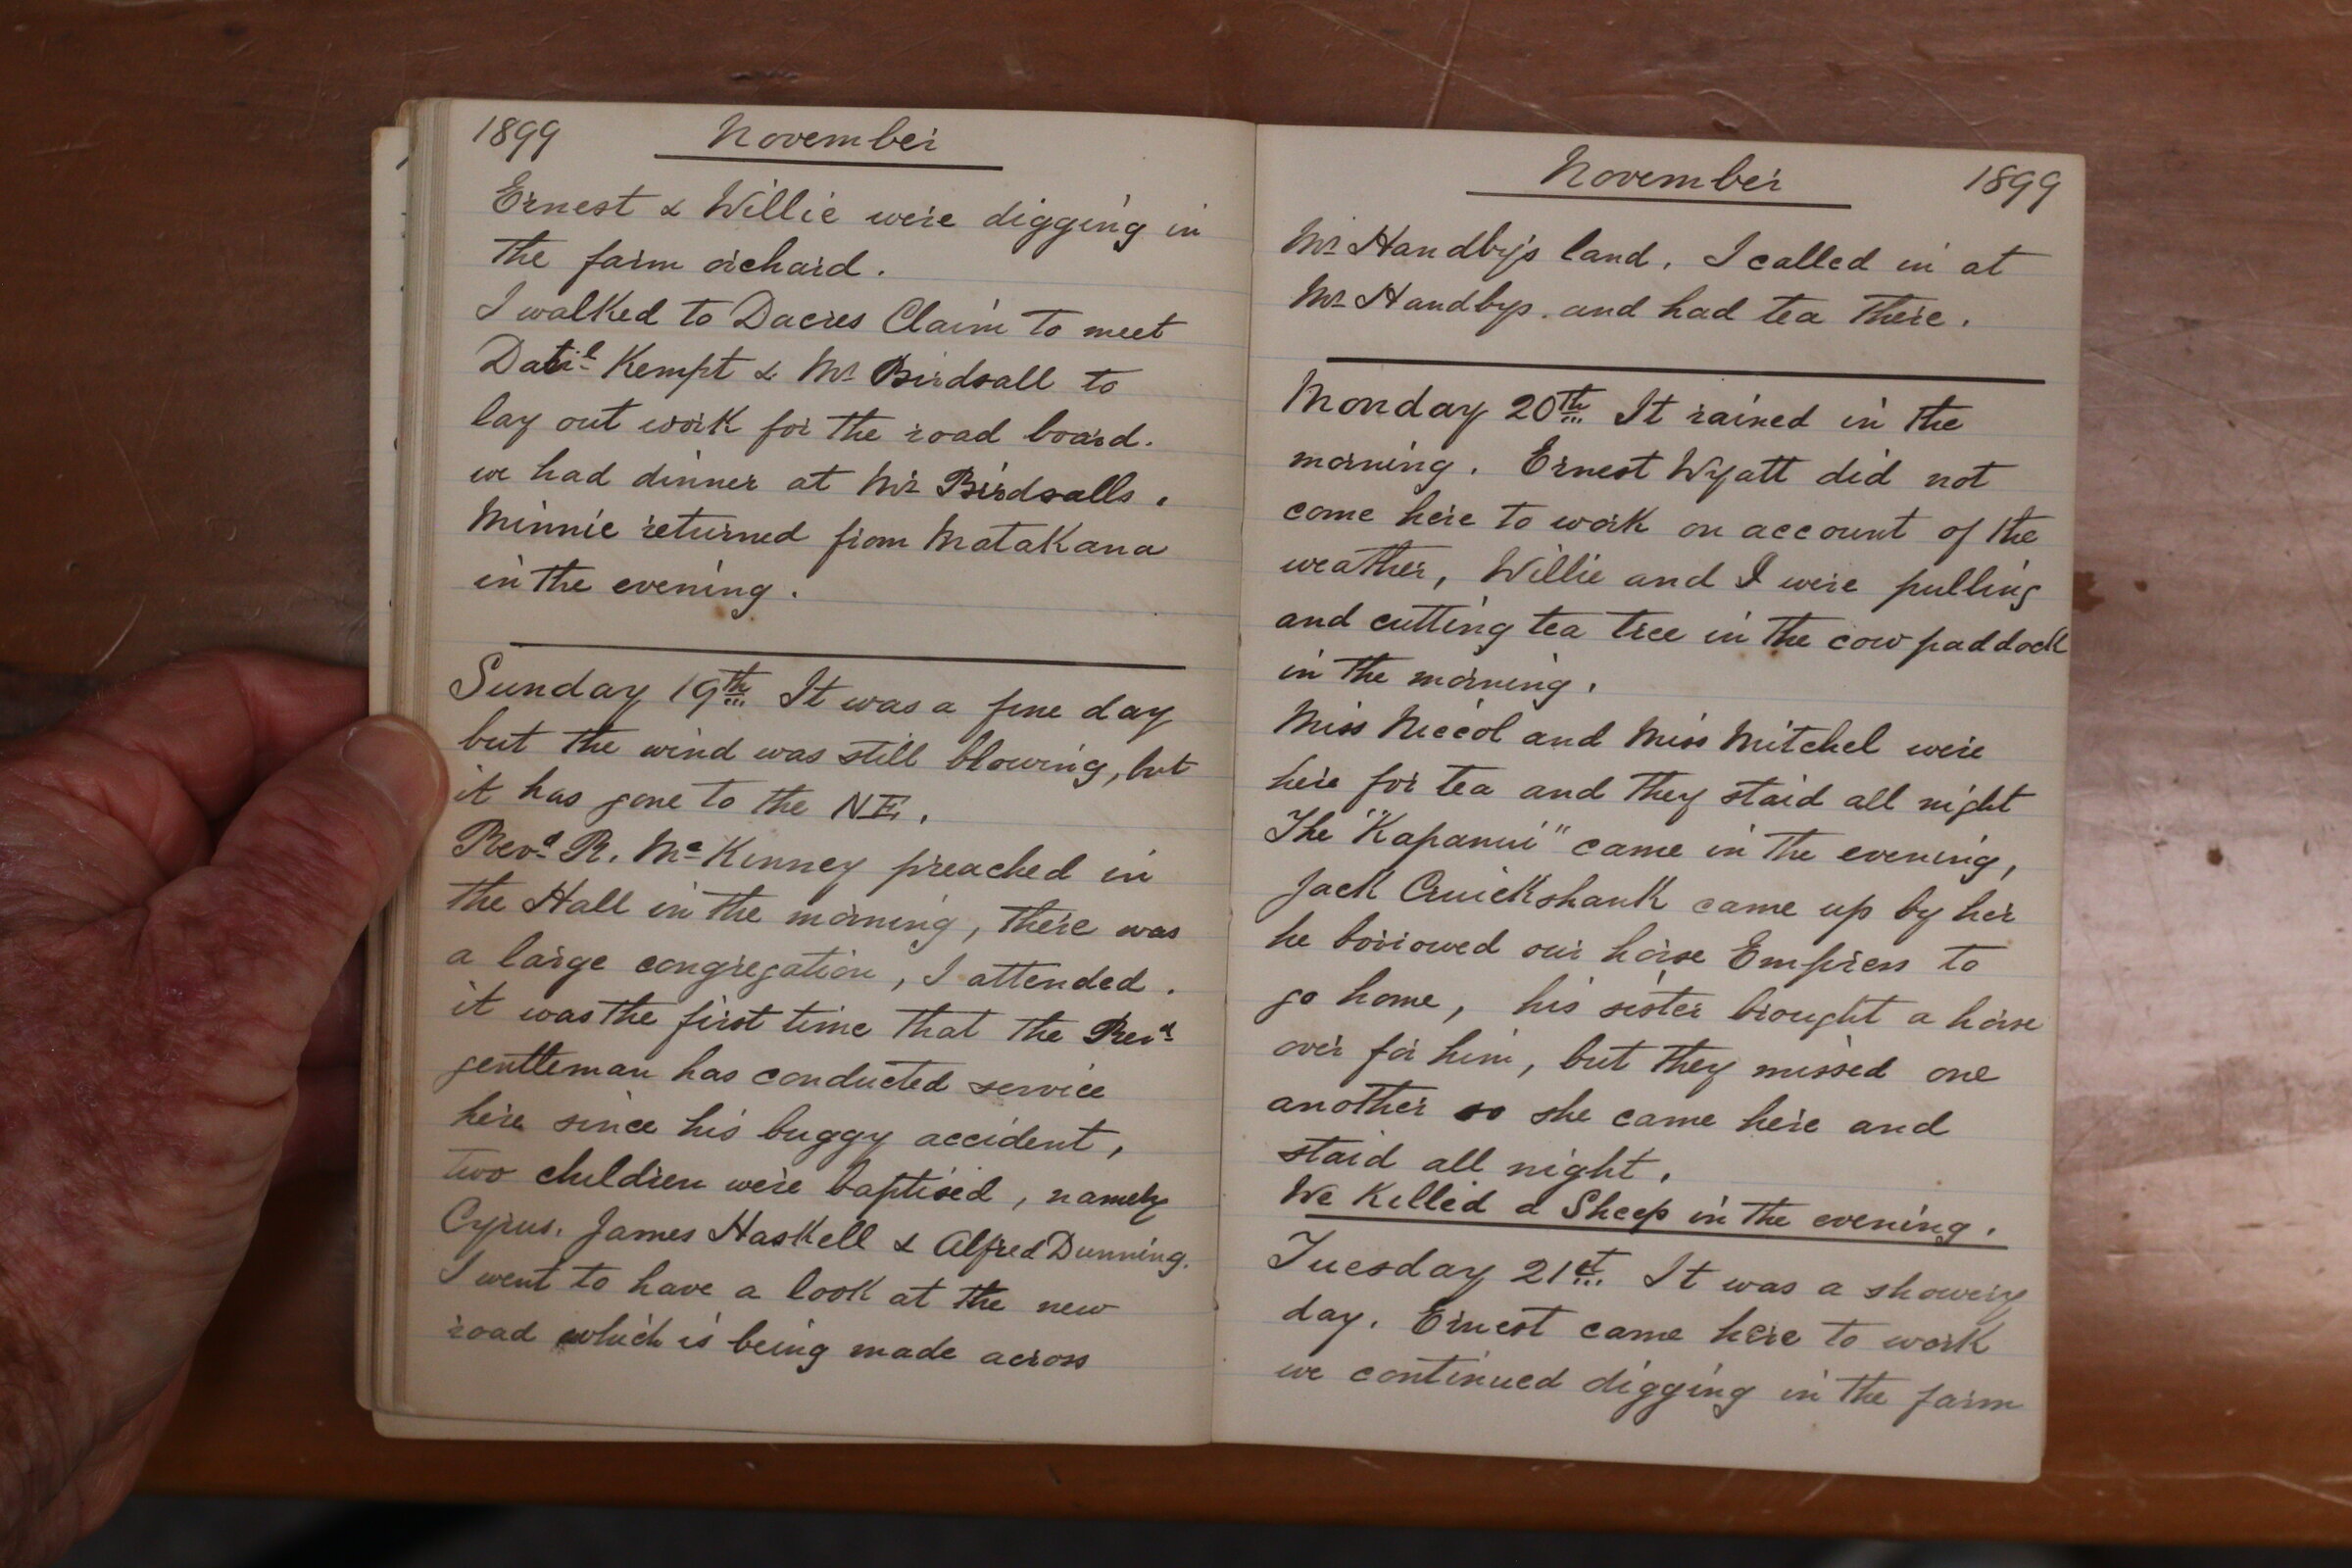 1899 November
Ernest & Willie were digging in
the farm orchard.
I walked to Dacres Claim to meet
Kempt & Mr Birdsall to
lay out work for the road board.
we had dinner at Mr Birdsalls.
Minnie returned from Matakana
in the evening.
Sunday 19th It was a fine day
but the wind was still blowing, but
it has gone to the NE.
Revd R. McKinney preached in
the Hall in the morning, there was
a large congregation, I attended.
it was the first time that the Revd
gentleman has conducted service
here since his buggy accident,
two children were baptised, namely
Cyrus. James Haskell & Alfred Dunning.
I went to have a look at the new
road which is being made across
November 1899
Mr Handby's land. I called in at
Mr Handbys. and had tea there.
Monday 20th It rained in the
morning. Ernest Wyatt did not
come here to work on account of the
weather, Willie and I were pulling
and cutting tea tree in the cow paddock
in the morning.
Miss Niccol and Miss Mitchel were
here for tea and they staid all night
The "Kapanui" came in the evening,
Jack Cruickshank came up by her
he borrowed our horse Empress to
go home, his sister brought a horse
over for him, but they missed one
another so she came here and
staid all night.
We Killed a Sheep in the evening.
Tuesday 21st It was a showery
day. Ernest came here to work
we continued digging in the farm